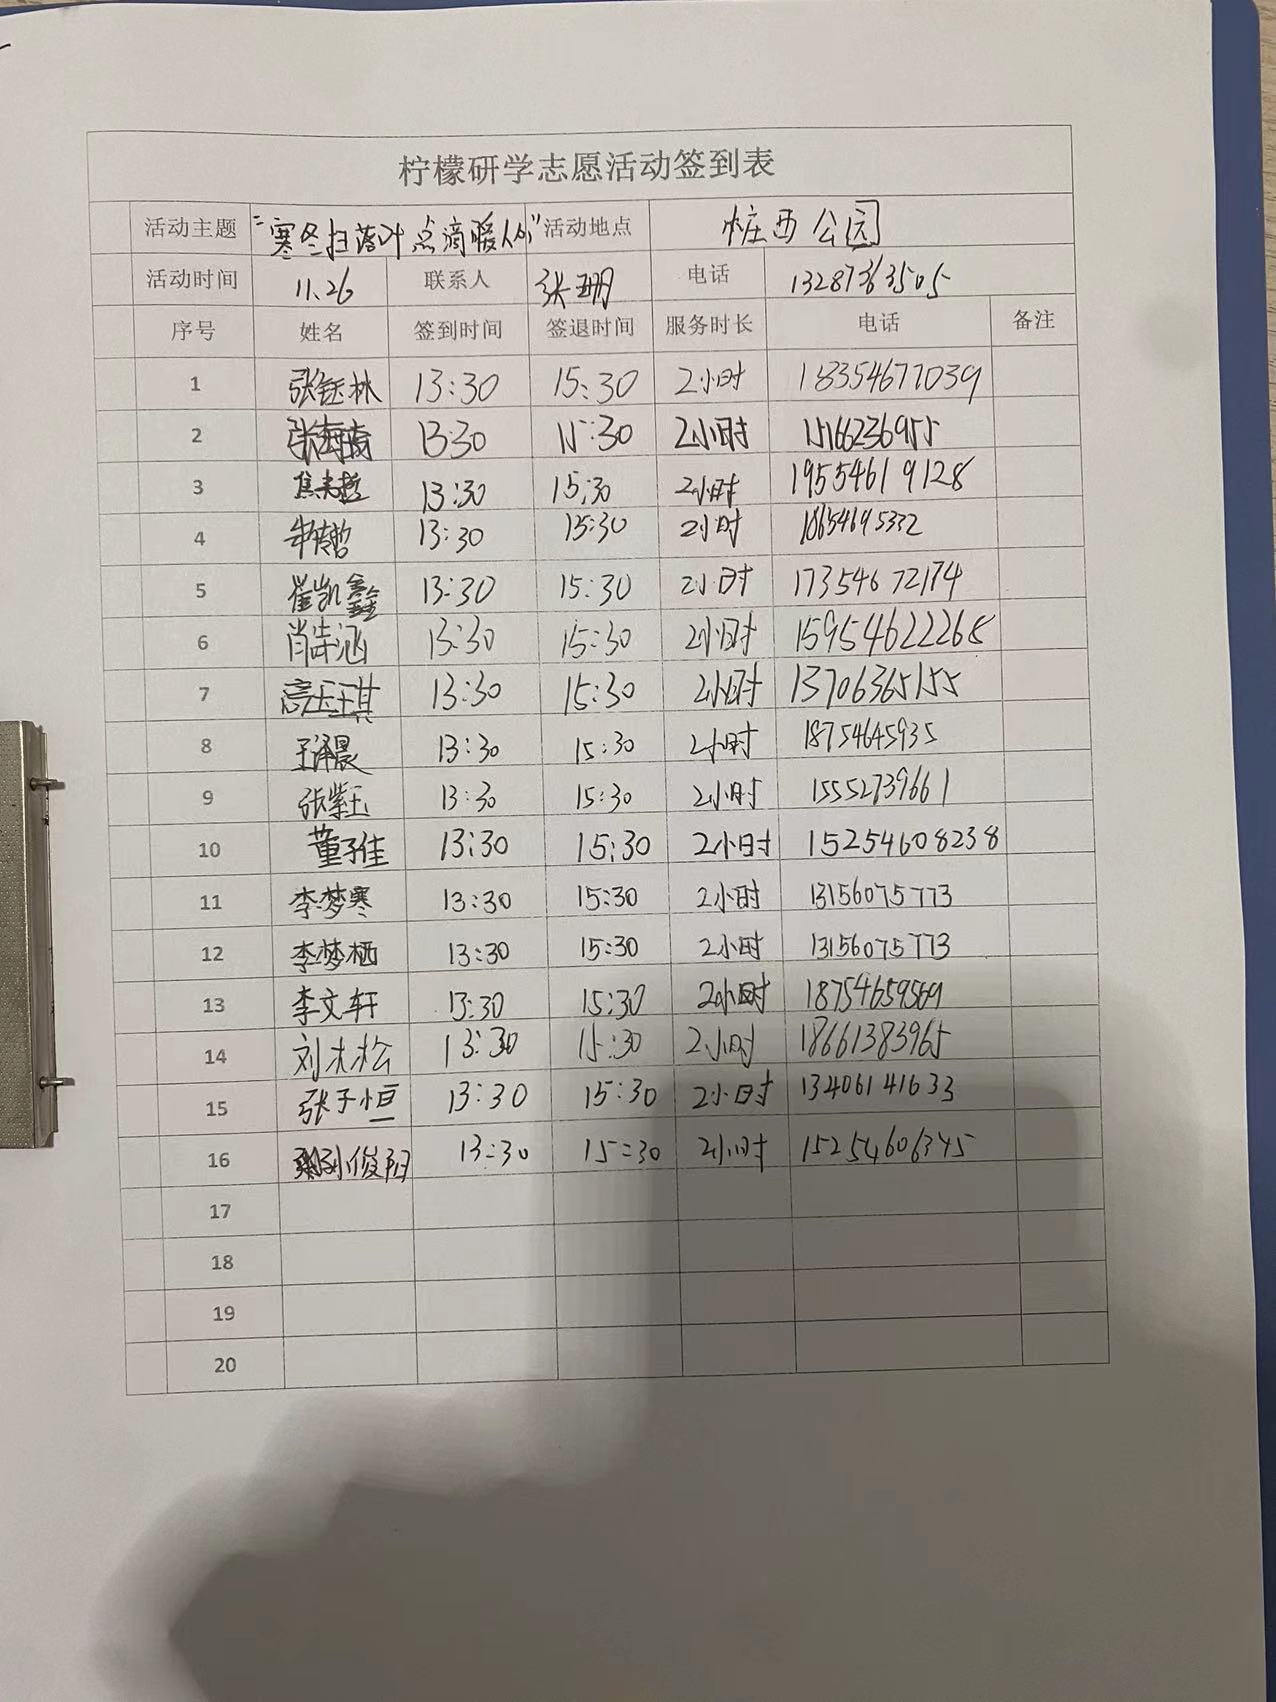 柠檬研学志愿活动签到表
活动主题 "寒冬扫落叶 点滴暖人心" 活动地点 桩西公园
活动时间 11.26 联系人 张珊 电话 13287363505
序号 姓名 签到时间 签退时间 服务时长 电话 备注
1 张钰林 13:30 15:30 2小时 18354677039
2 13:30 15:30 2小时 15166236955
3 13:30 15:30 2小时 19554619128
4 13:30 15:30 2小时 18654695332
5 崔凯鑫 13:30 15:30 2小时 17354672174
6 肖诗涵 13:30 15:30 2小时 15954622268
7 高玉琪 13:30 15:30 2小时 13706365155
8 于泽晨 13:30 15:30 2小时 18754645935
9 张紫玉 13:30 15:30 2小时 15552739661
10 董子佳 13:30 15:30 2小时 15254608238
11 李梦寒 13:30 15:30 2小时 13156075773
12 李梦栖 13:30 15:30 2小时 13156075773
13 李文轩 13:30 15:30 2小时 18754659569
14 刘木松 13:30 15:30 2小时 18661383965
15 张于恒 13:30 15:30 2小时 13406141633
16 孙俊阳 13:30 15:30 2小时 15254606345
17
18
19
20